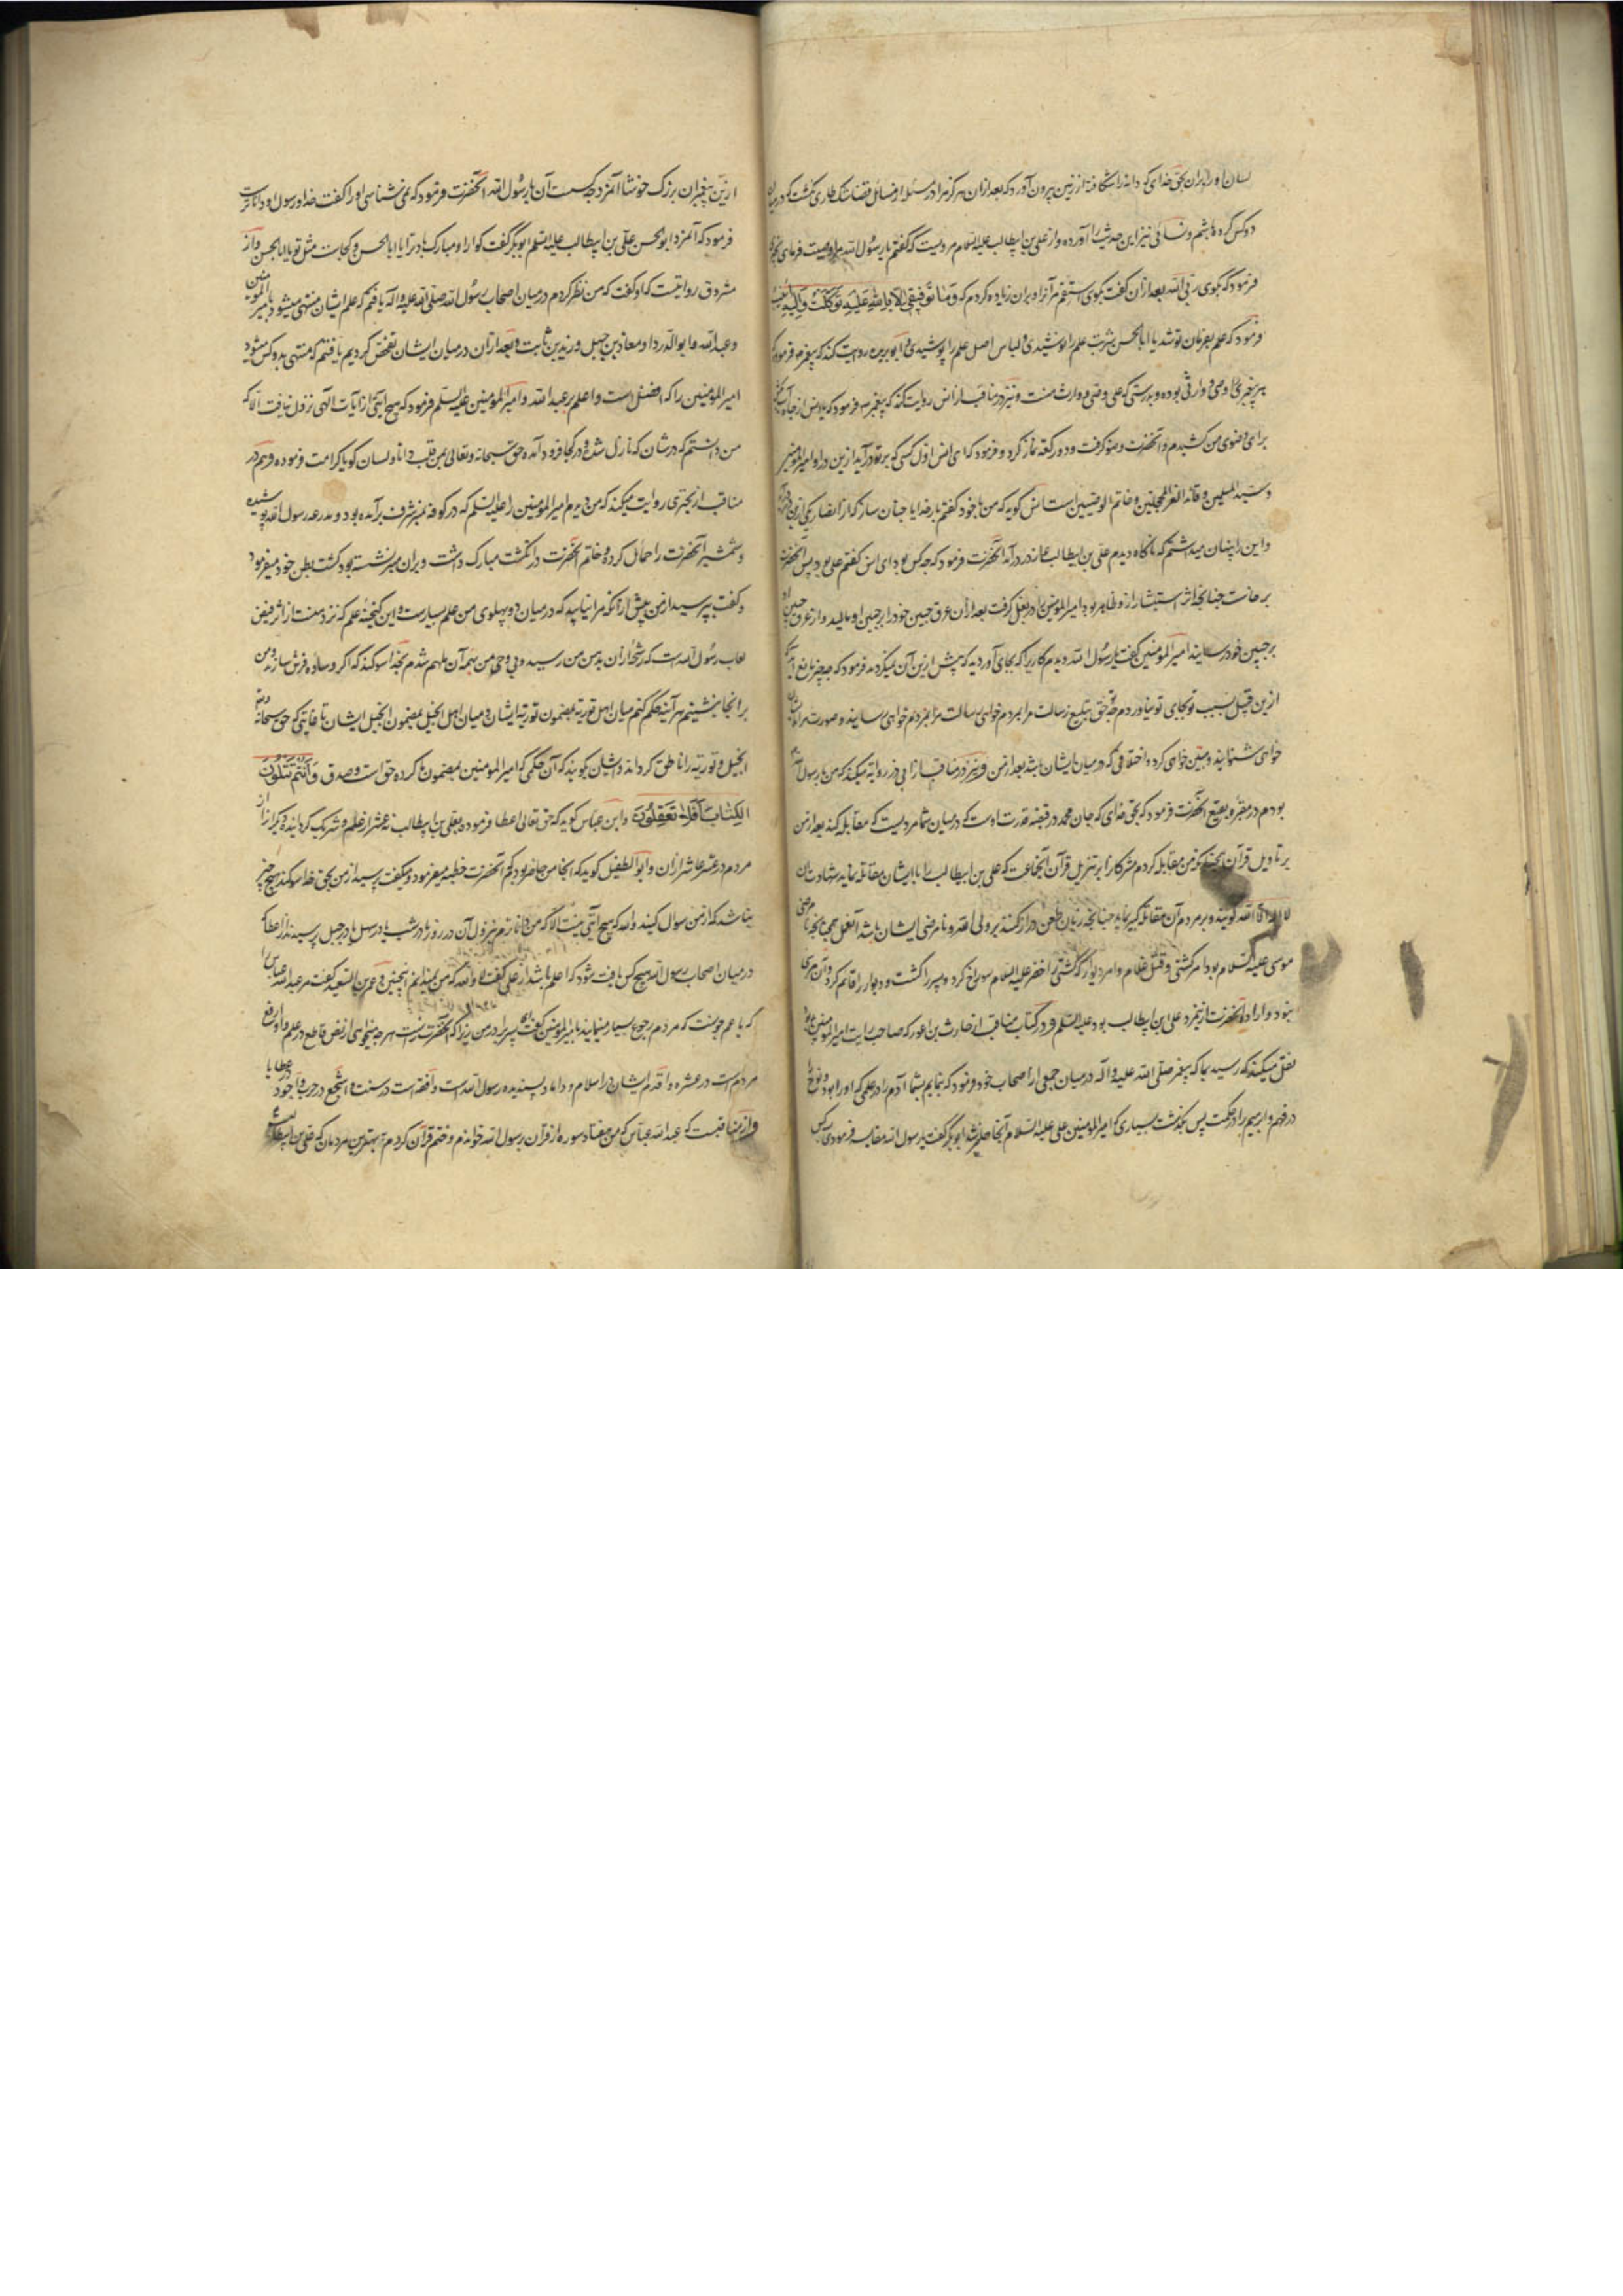 لسان او را بران بحق خدای که دانه را شکافته از زمین بیرون آورد که بعد ازان هرگز مرا در مسئله از مسائل قضا شک طاری نگشت که در میان
دو کس کرده باشم و نسائی نیز این حدیث را آورده و از علی بن ابیطالب علیه السلام مرویست که گفتم یا رسول الله مرا وصیت فرمای
فرمود که بگوی ربی الله بعد ازان گفت بگوی ستقم مرآنرا و بران زیاده کردم که وَمَا تَوْفِیقِی اِلَّا بِاللهِ عَلَیْهِ تَوَکَّلْتُ وَاِلَیْهِ
فرمود که علم بفرمان تو شد یا ابا الحسن شربت علم را نوشیدی و لباس اصل علم را پوشیدی و ابو بریده روایت کند که پیغمبر فرمود که
هر پیغمبری را وصی و وارثی بوده و بدرستی که علی وصی و وارث منست و نیز در مناقب از انس روایت کند که پیغمبر فرمود که یا انس از چاه آب
برای وضوی من کشیدم و آنحضرت وضو گرفت و دو رکعت نماز کرد و فرمود که ای انس اول کسی که بر تو درآید ازین در او امیر المومنین
و سید المسلمین و قائد الغر المحجلین و خاتم الوصیین است انس گوید که من با خود گفتم بار خدایا چنان ساز که از انصار یکی ازین
و این را پنهان میداشتم که ناگاه دیدم علی بن ابیطالب از در درآمد آنحضرت فرمود که چه کس بود ای انس گفتم علی بود پس آنحضرت
برخاست چنانچه اثر استبشار ازو ظاهر بود امیر المومنین را در بغل گرفت بعد ازان عرق جبین خود را بر جبین او مالید و از عرق جبین او
بر جبین خود رسانید امیر المومنین گفت یا رسول الله دیدم کاریرا که بجای آوردید که پیش ازین آن نمیکردید فرمود که چه چیز مانع آید
ازین قبل نسبت تو بجای تو بیاورد مر حق تبلیغ رسالت مرا بمردم خواهی رسالت مرا بمردم خواهی رسانید و صورت مرا بایشان
خواهی شنوانید و مبین خواهی کرد و اختلافی که در میان ایشان باشد بعد از من و نیز در مناقب از ابی ذر روایه میکند که من با رسول الله
بودم در مقبره بقیع آنحضرت فرمود که بحق خدای که جان محمد در قبضه قدرت اوست که در میان شما مردیست که مقابله کند بعد از من
بر تاویل قرآن همچنانکه من مقابله کردم مشرکان را بر تنزیل قرآن آنجماعت که علی بن ابیطالب را با ایشان مقاتله نماید شهادت بان
لا اله الا الله گویند و بر مردم آن مقاتله کبیر نماید چنانچه زبان طعن دراز کنند بر ولی الله و نامرضی ایشان باشد آنفعل همچنانچه نامرضی
موسی علیه السلام بود امر کشتی و قتل غلام و امر دیوار که کشتی را خضر علیه السلام سوراخ کرد و پسر را کشت و دیوار را قائم کرد و آن مرضی
نبود و اراده آنحضرت ازینمرد علی بن ابیطالب بود علیه السلم و در کتاب مناقب از حارث بن اعور که صاحب رایت امیر المومنین بود
نقل میکند که رسید بما که پیغمبر صلی الله علیه و آله در میان جمعی از اصحاب خود فرمود که بنمایم بشما آدم را در علمی که او را بود و نوح را
در فهم و ابرهیم را در حکمت پس نگذشت بسیاری که امیر المومنین علی علیه السلام آنجا حاضر شد ابو بکر گفت یا رسول الله مقابله فرمودی یک کس
ازین پیغمبران بزرگ خوشا آنمرد چه کسست آن یا رسول الله آنحضرت فرمود که نمی شناسی او را گفت خدا و رسول او داناترست
فرمود که آنمرد ابو الحسن علی بن ابیطالب علیه السلم ابو بکر گفت گوارا و مبارک باد ترا یا ابا الحسن و کجاست مثل تو یا ابا الحسن و از
مسروق روایتست که او گفت که من نظر کردم در میان اصحاب رسول الله صلی الله علیه و آله یافتم که علم ایشان منتهی میشود بامیر المومنین
و عبد الله و ابو الدردا و معاذ بن جبل و زید بن ثابت و بعد ازان در میان ایشان تفحص کردیم یافتم که منتهی بدو کس میشود
امیر المومنین را که افضل است و اعلم بر عبد الله و امیر المومنین علیه السلم فرمود که هیچ آیتی از آیات الهی نزول نیافت الا که
من دانستم که در شان که نازل شده و در کجا فرود آمده حق سبحانه و تعالی بمن قلب دانا و لسان گویا کرامت فرموده و هم در
مناقب از بختری روایت میکند که من دیدم امیر المومنین را علیه السلم که در کوفه بمنبر شرف برآمده بود و مدرعه رسول الله پوشیده
و شمشیر آنحضرت را حمایل کرده و خاتم آنحضرت در انگشت مبارک داشت و بران منبر نشسته بود کشف بطن خود میفرمود
و گفت بپرسید از من پیش از آنکه مرا نیابید که در میان دو پهلوی من علم بسیارست و این گنجینه علم که نزد منست از اثر فیض
لعاب رسول الله است که رشحه ازان بدهن من رسید و بی وحی من بهم آن ملهم شدم بخدا سوگند که اگر وساده فرش سازند و من
برانجا بنشینم هر آینه حکم کنم میان اهل توریة بمضمون توریة ایشان و میان اهل انجیل بمضمون انجیل ایشان تا غایتی که حق سبحانه
انجیل و توریة را ناطق گرداند و ایشان گویند که آن حکمی که امیر المومنین بمضمون ما کرده حق است و صدق وَأَنْتُمْ تَتْلُونَ
الْکِتَابَ أَفَلَا تَعْقِلُونَ و ابن عباس گوید که حق تعالی اعطا فرموده بعلی بن ابیطالب نه عشر از علم و شریک گردانیده دیگرانرا از
مردم در عشر عاشر ازان و ابو الطفیل گوید که آنجا من حاضر بودم که آنحضرت خطبه میفرمود و میگفت بپرسید از من بحق خدا سوگند هیچ چیز
نباشد که از من سوال کنید والله که هیچ آیتی نیست الا که من داناترم بنزول آن در روزها و در شب یا در سهل یا در جبل پرسیدند از عطا که
در میان اصحاب رسول الله هیچ کس یافت شود که اعلم باشد از علی گفت لا والله که من نمیدانم اینچنین و عمر بن السعید گفت مر عبد الله عباس را
که یا عم چونست که مردم رجوع بسیار مینمایند بامیر المومنین گفت ای پسر برادر من زیرا که آنحضرت راست هر چه میخواهی از نص قاطع در علم و او ارفع
مردم است در عشره و اقدم ایشان در اسلام و داماد پسندیده رسول الله است و افقه است در سنت و اشجع در حرب و اجود در عطایا
و از مناقبست که عبد الله عباس که من هفتاد سوره از قرآن رسول الله خواندم و ختم قرآن کردم بر بهترین مردمان که علی بن ابیطالبست